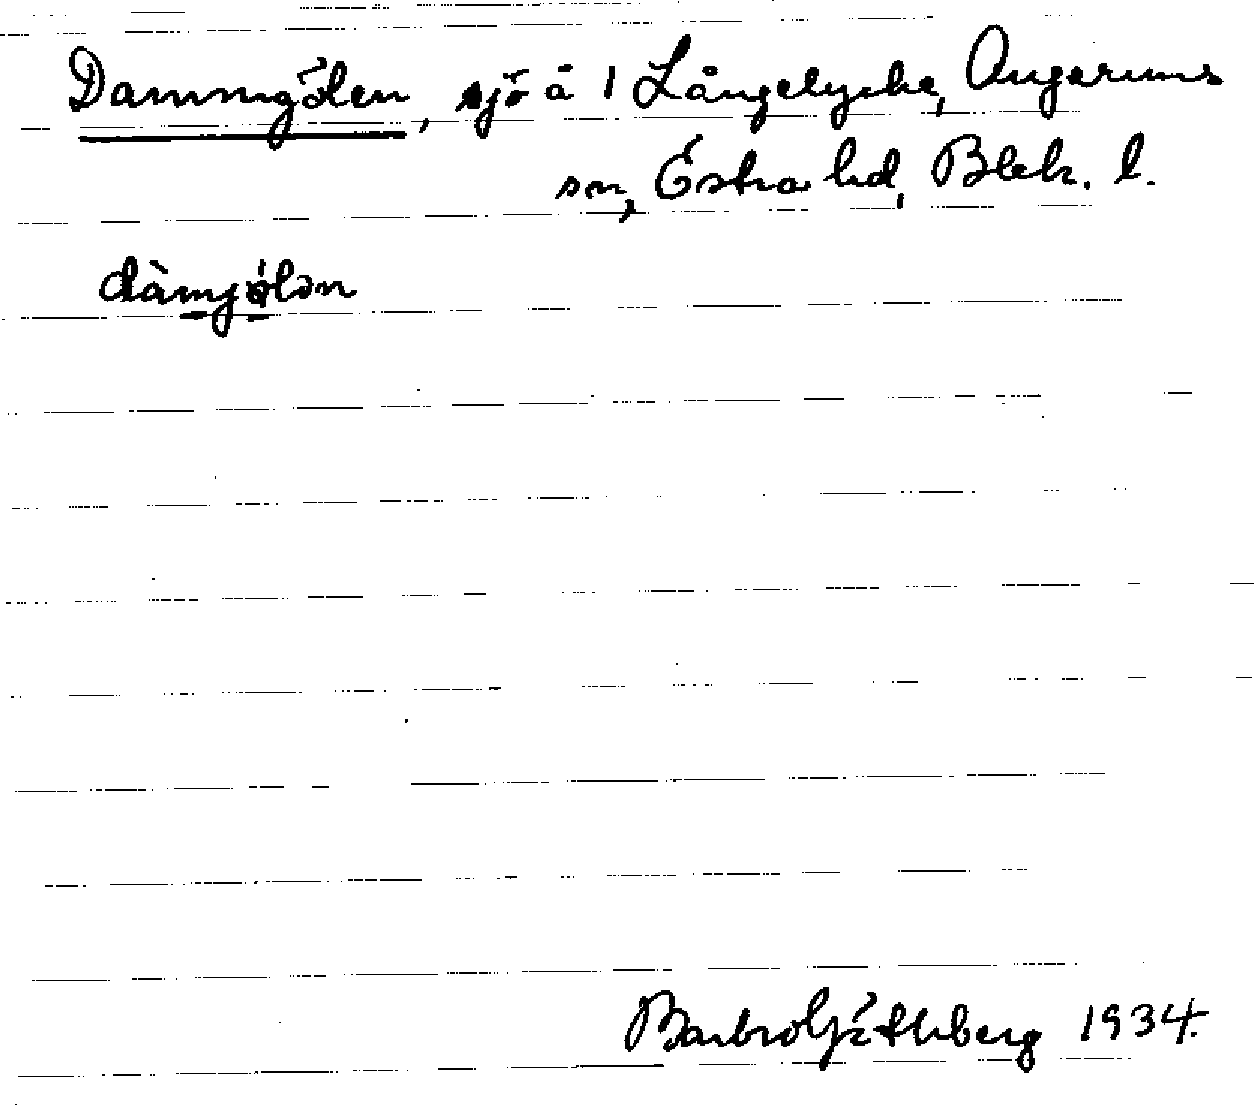 Dammgölen, sjö å 1 Långelycke, Augerums
sn, Östra hd, Blek. l.
dàmjølən
Barbro Göthberg 1934.